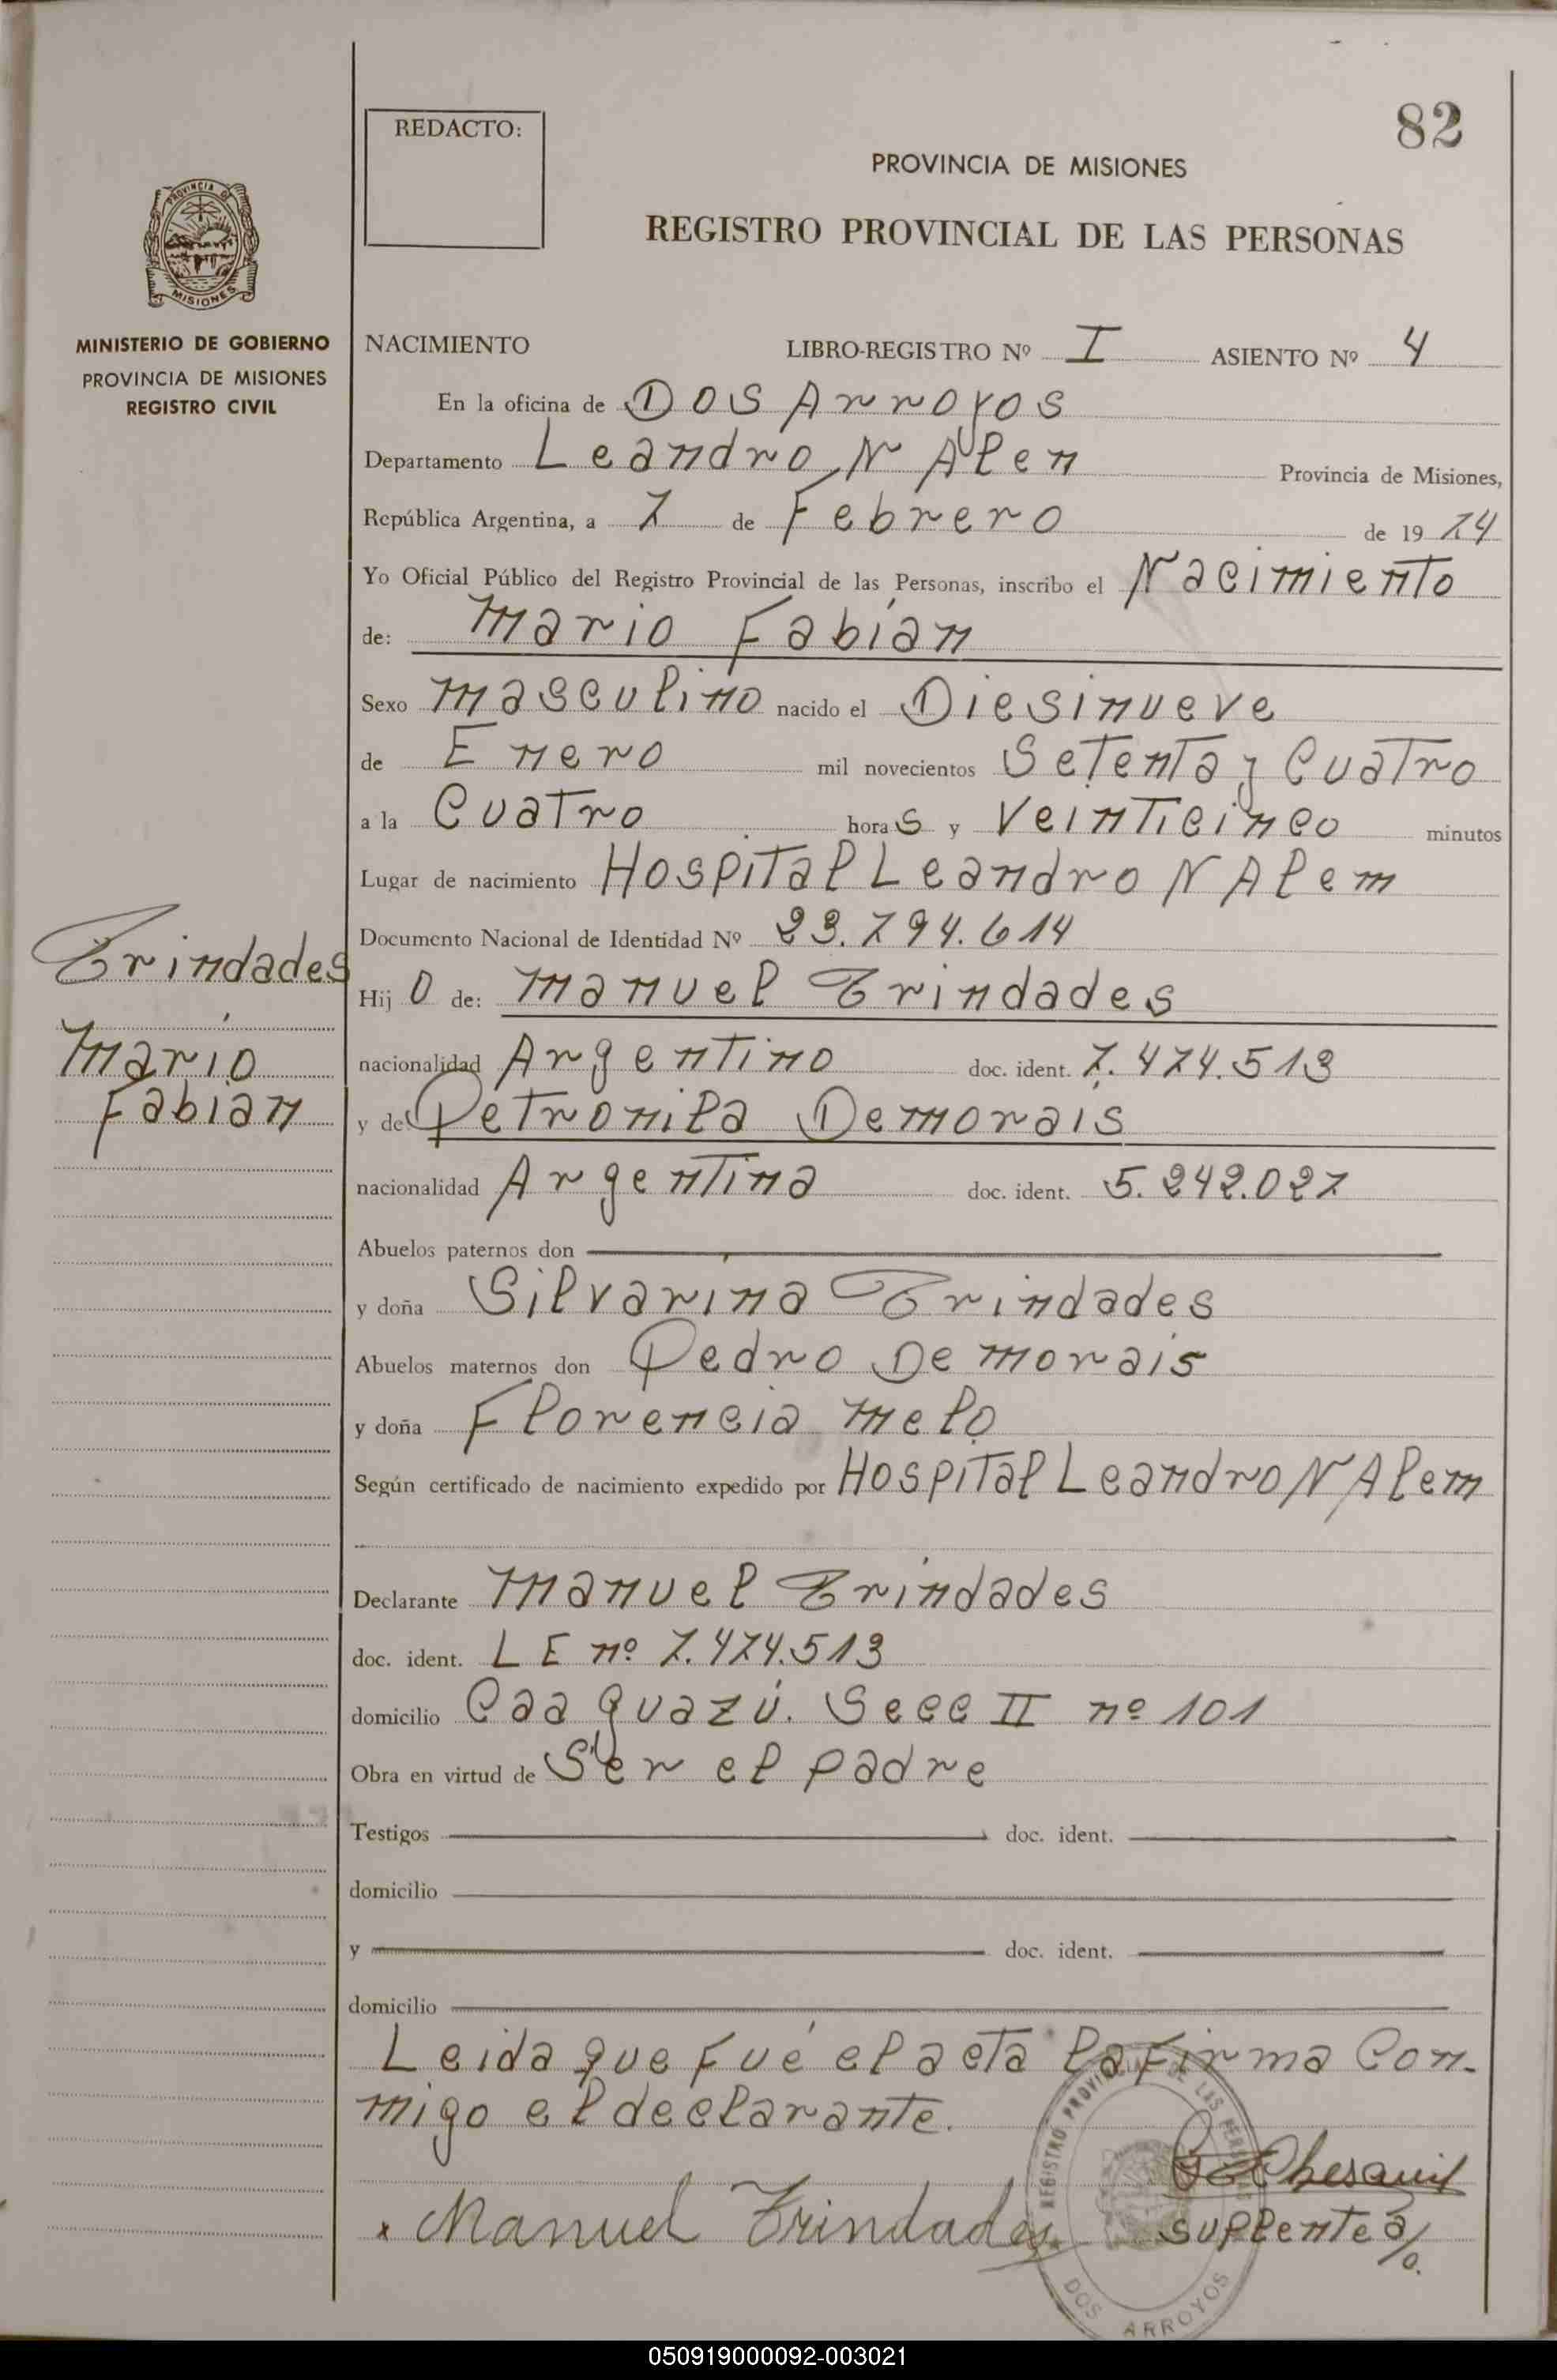 82
REDACTO:
PROVINCIA DE MISIONES
REGISTRO PROVINCIAL DE LAS PERSONAS
PROVINCIA DE
MISIONES
MINISTERIO DE GOBIERNO
PROVINCIA DE MISIONES
REGISTRO CIVIL
NACIMIENTO LIBRO-REGISTRO Nº I ASIENTO Nº 4
En la oficina de Dos Arroyos
Departamento Leandro N Alen Provincia de Misiones,
República Argentina, a 7 de Febrero de 19 74
Yo Oficial Público del Registro Provincial de las Personas, inscribo el Nacimiento
de: Mario Fabián
Sexo Masculino nacido el Diesinueve
de Enero mil novecientos Setenta y Cuatro
a la Cuatro horas y Veinticinco minutos
Lugar de nacimiento Hospital Leandro N Alem
Documento Nacional de Identidad Nº 23.794.614
Trindades
Mario
Fabián
Hijo de: Manuel Trindades
nacionalidad Argentino doc. ident. 7.474.513
y de Petronila Demorais
nacionalidad Argentina doc. ident. 5.242.027
Abuelos paternos don
y doña Silvarina Trindades
Abuelos maternos don Pedro De morais
y doña Florencia Melo
Según certificado de nacimiento expedido por Hospital Leandro N Alem
Declarante Manuel Trindades
doc. ident. L E nº 7.474.513
domicilio Caa guazú. Secc II nº 101
Obra en virtud de Ser el padre
Testigos doc. ident.
domicilio
y doc. ident.
domicilio
Leida que fué el acta la firma Con-
migo el declarante.
REGISTRO PROVINCIAL DE LAS PERSONAS
DOS ARROYOS
Manuel Trindades
Suplente a/c.
050919000092-003021